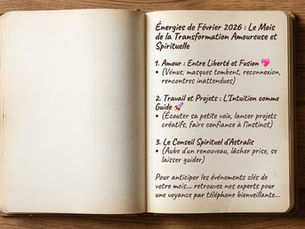 Énergies de Février 2026 : Le Mois
de la Transformation Amoureuse et
Spirituelle
1. Amour : Entre Liberté et Fusion 💖
• (Vénus, masques tombent, reconnexion,
rencontres inattendues)
2. Travail et Projets : L'Intuition comme
Guide 🚀
• (Écouter sa petite voix, lancer projets
créatifs, faire confiance à l'instinct)
3. Le Conseil Spirituel d'Astralis
• (Aube d'un renouveau, lâcher prise, se
laisser guider)
Pour anticiper les événements clés de
votre mois... retrouvez nos experts pour
une voyance par téléphone bienveillante...